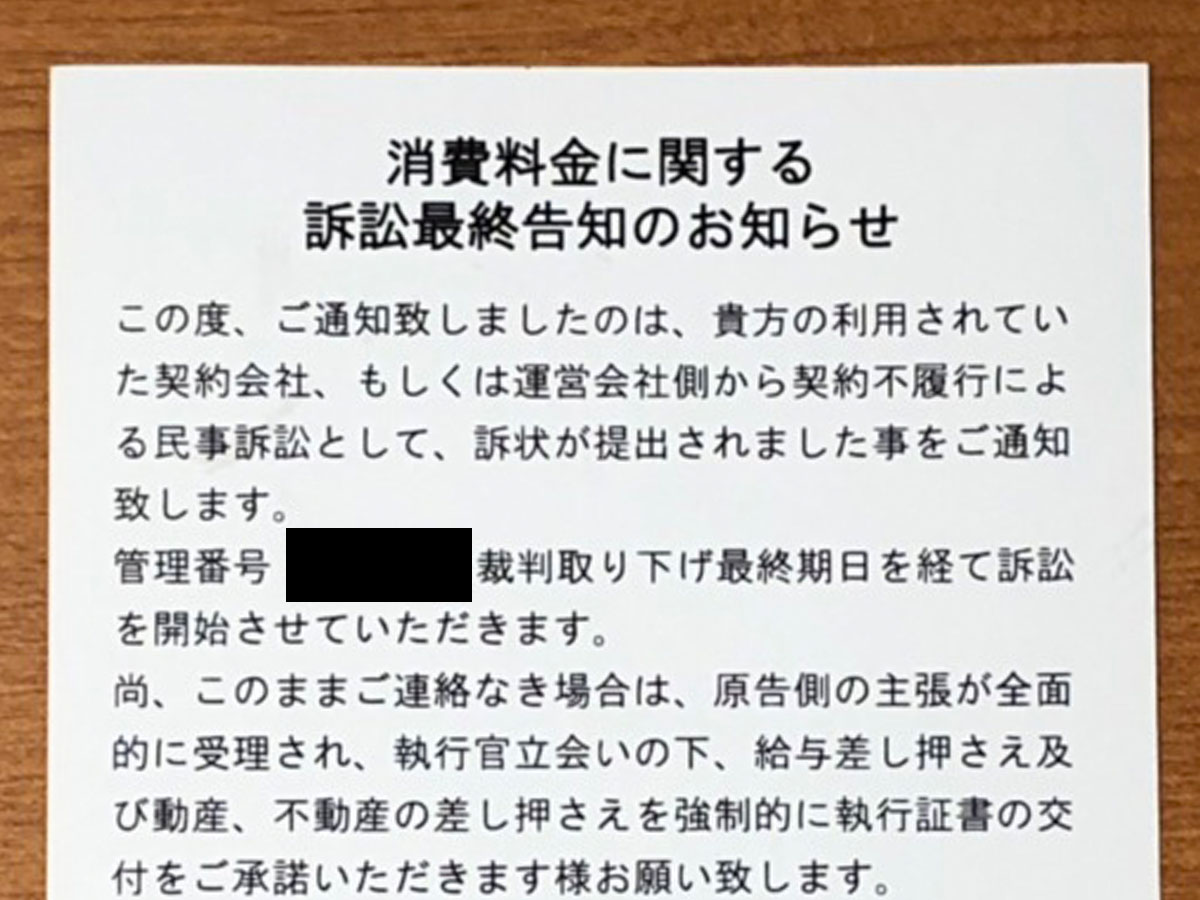 消費料金に関する
訴訟最終告知のお知らせ
この度、ご通知致しましたのは、貴方の利用されてい
た契約会社、もしくは運営会社側から契約不履行によ
る民事訴訟として、訴状が提出されました事をご通知
致します。
管理番号 裁判取り下げ最終期日を経て訴訟
を開始させていただきます。
尚、このままご連絡なき場合は、原告側の主張が全面
的に受理され、執行官立会いの下、給与差し押さえ及
び動産、不動産の差し押さえを強制的に執行証書の交
付をご承諾いただきます様お願い致します。